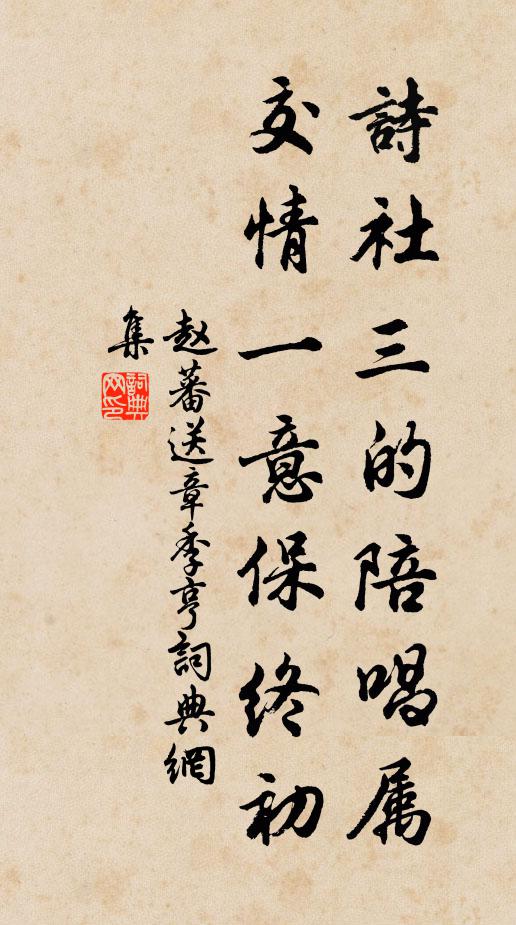 詩社三的陪唱属
交情一意保終初
赵蕃送章季亨詞典網
集
詞典
网印